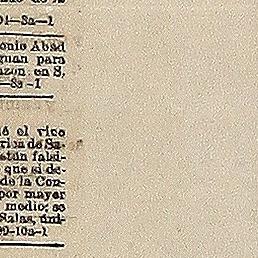 01—8a—1
onio Abad
guan para
azon. en S.
—8a-1
é el vico
están falsi-
que si de-
de la Con-
por mayor
medio; se
Salas, úni-
29-10a-1